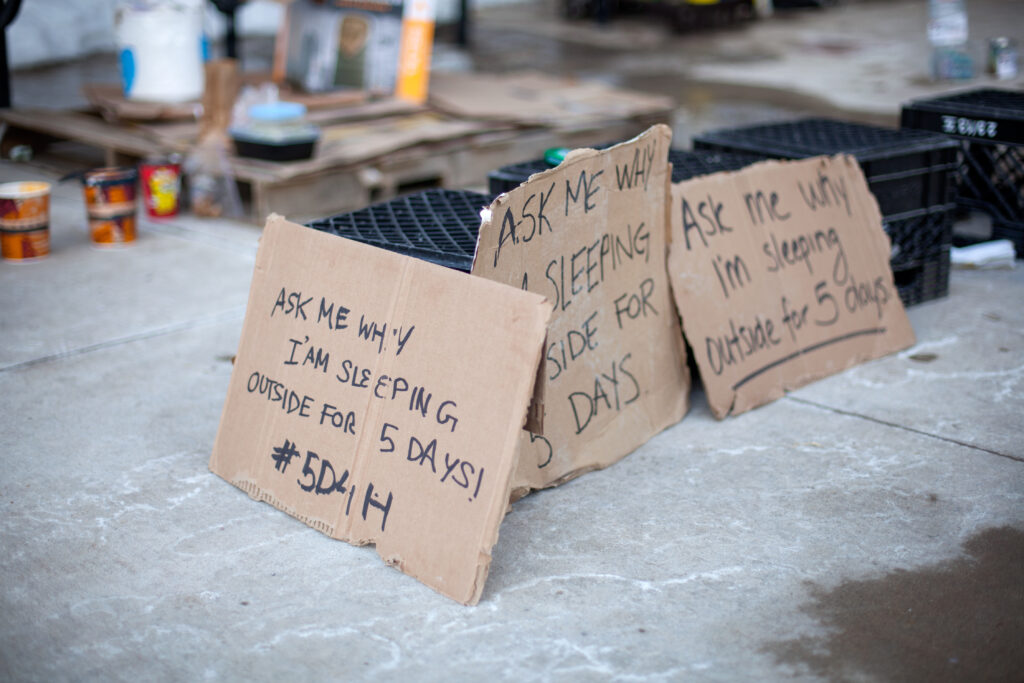 ASK ME WHY
I'AM SLEEPING
OUTSIDE FOR 5 DAYS!
#5D4H
ASK ME WHY
SLEEPING
SIDE FOR
5 DAYS.
Ask me why
I'm sleeping
outside for 5 days.